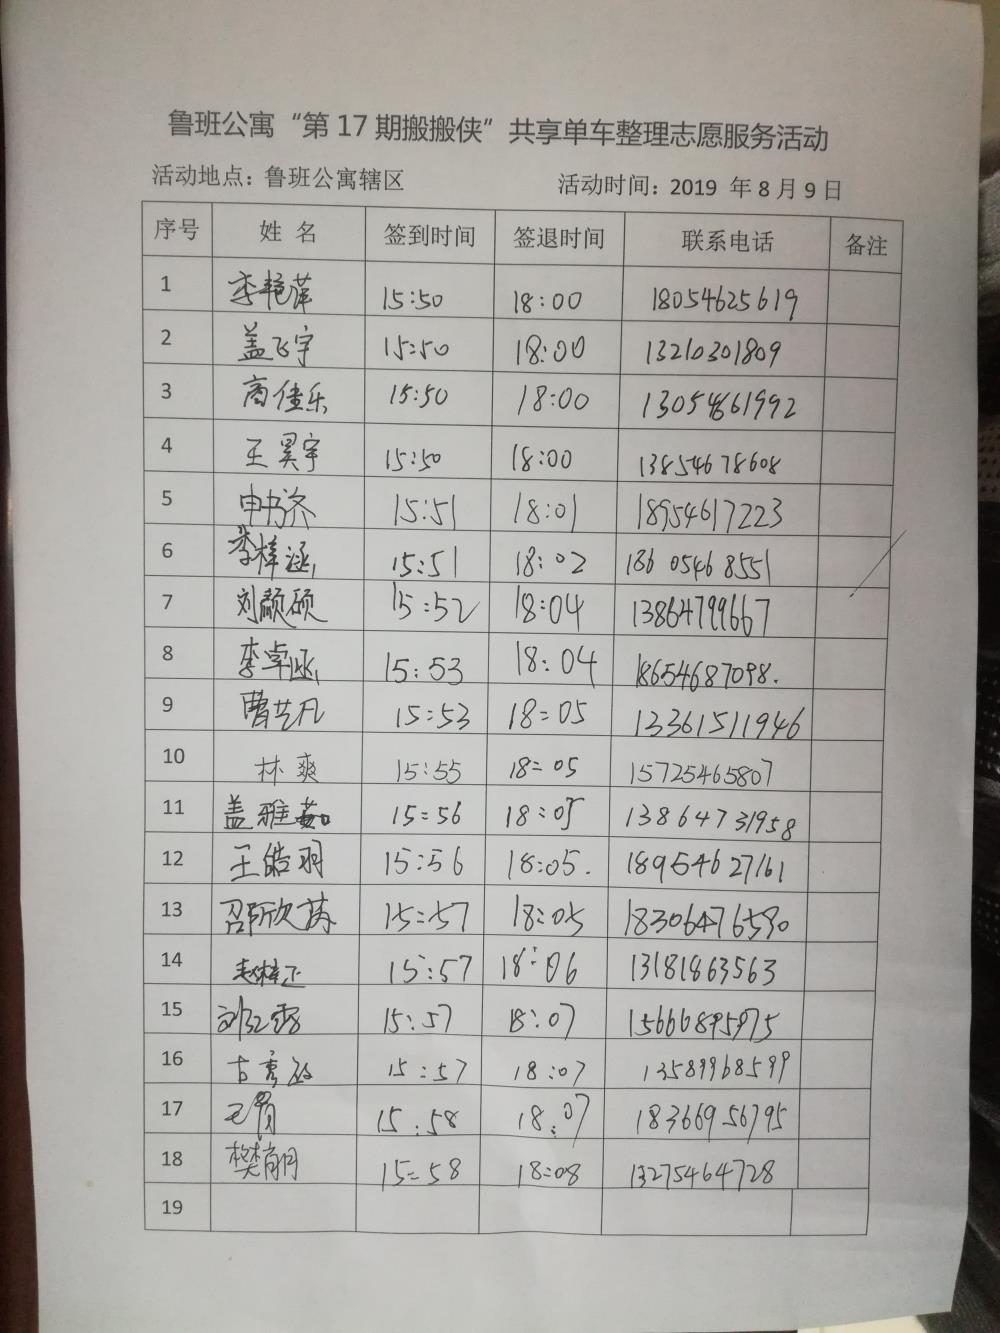 鲁班公寓“第 17 期搬搬侠”共享单车整理志愿服务活动
活动地点：鲁班公寓辖区 活动时间：2019 年 8 月 9 日
序号 姓 名 签到时间 签退时间 联系电话 备注
1 李艳萍 15:50 18:00 18054625619
2 盖飞宇 15:50 18:00 13210301809
3 商佳乐 15:50 18:00 13054661992
4 王昊宇 15:50 18:00 13854678608
5 申书齐 15:51 18:01 18954617223
6 李梓涵 15:51 18:02 186 0546 8551
7 刘颜硕 15:52 18:04 13864799667
8 李卓涵 15:53 18:04 18654687098.
9 曹艺凡 15:53 18:05 13361511946
10 林爽 15:55 18:05 15725465807
11 盖雅茹 15:56 18:05 13864731958
12 王皓羽 15:56 18:05. 18954627161
13 15:57 18:05 18306476590
14 15:57 18:06 13181863563
15 15:57 18:07
16 15:57 18:07 13589968599
17 15:58 18:07 18366956795
18 15:58 18:08 13275464728
19